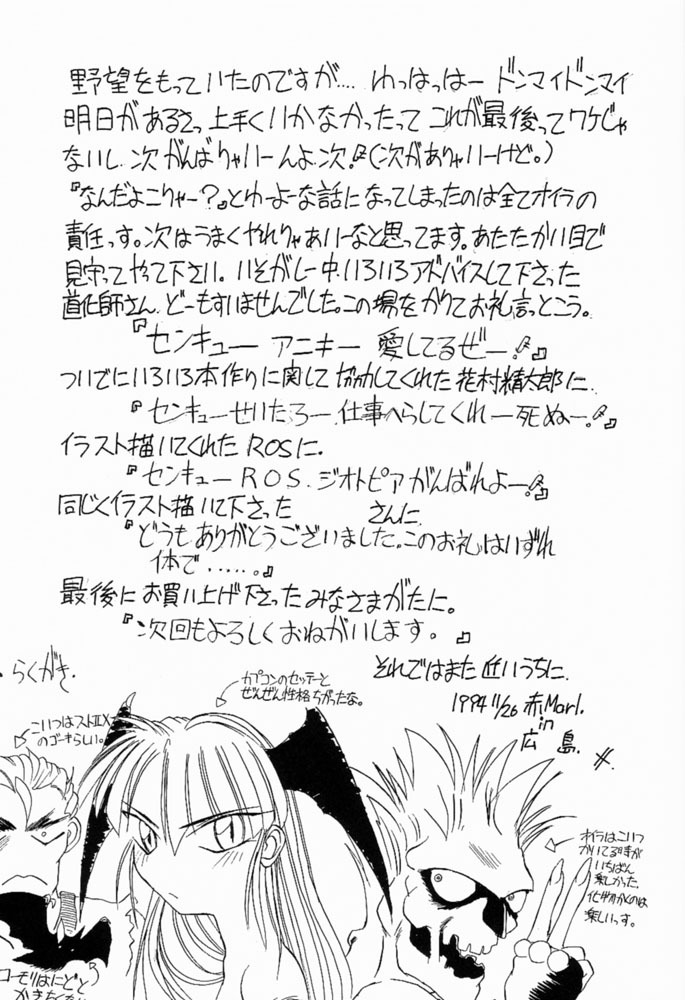 野望をもっていたのですが.... わっはっはー ドンマイドンマイ
明日があるさっ 上手くいかなかったって これが最後ってワケじゃ
ないし. 次がんばりゃいーんよ. 次!(次がありゃいーけど。)
『なんだよこりゃー?』とゆーよーな話になってしまったのは全てオイラの
責任っす。次はうまくやれりゃあいーなと思ってます。あたたかい目で
見守ってやって下さい. いそがしー中. いろいろアドバイスして下さった
師さん. どーもすいませんでした。この場をかりてお礼言っとこう。
『センキュー アニキー 愛してるぜー!』
ついでにいろいろ本作りに関して協力してくれた花村精太郎に.
『センキューせいたろー. 仕事へらしてくれー死ぬー!』
イラスト描いてくれた ROSに.
『センキュー ROS. ジオトピアがんばれよー!』
同じくイラスト描いて下さった さんに.
『どうもありがとうございました。このお礼はいずれ
体で ......。』
最後に お買い上げ下さったみなさまがたに。
『次回もよろしくおねがいします。』
それではまた 近いうちに.
1994 11/26 赤Marl.
in
広島.
らくがき.
カプコンのセッテーと
ぜんぜん性格ちがったな。
こいつはストⅡX
のゴーキらしい。
オイラはこいつ
かいてる時が
いちばん
楽しかった.
化ケモノかくのは
楽しいっす。
コーモリはにどと
かきたくな